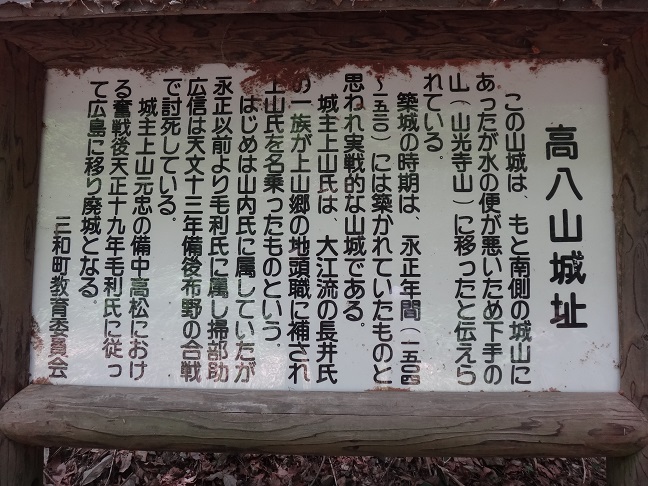 高八山城址
この山城は、もと南側の城山に
あったが水の便が悪いため下手の
山(山光寺山)に移ったと伝えら
れている。
築城の時期は、永正年間(一五〇四
〜一五二〇)には築かれていたものと
思われ実戦的な山城である。
城主上山氏は、大江流の長井氏
の一族が上山郷の地頭職に補され
上山氏を名乗ったものという。
はじめは山内氏に属していたが
永正以前より毛利氏に属し掃部助
広信は天文十三年備後布野の合戦
で討死している。
城主上山元忠の備中高松におけ
る奮戦後天正十九年毛利氏に従っ
て広島に移り廃城となる。
三和町教育委員会